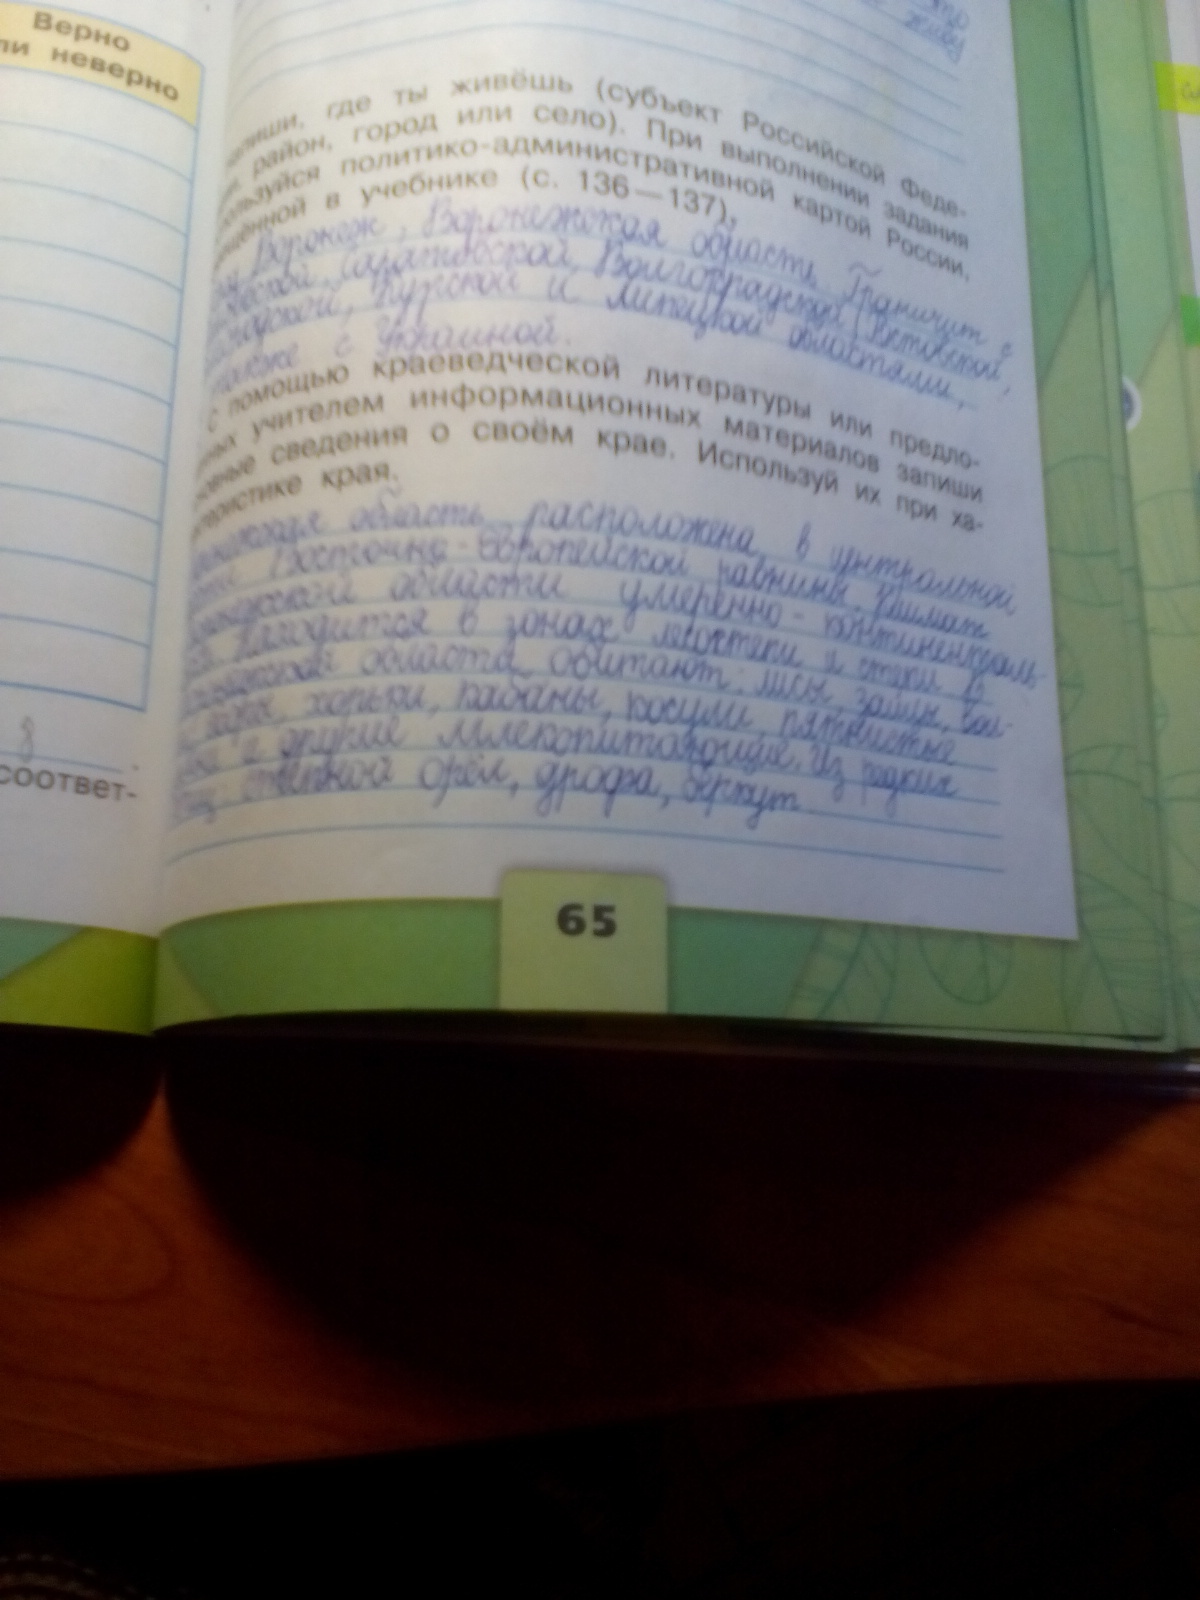 Верно
ли неверно
соответ-
где ты живёшь (субъект Российской Феде-
район, город или село). При выполнении задания
политико-административной картой России,
в учебнике (с. 136—137).
Воронеж, Воронежская область. Граничит с
Саратовской, Волгоградской, Ростовской,
Курской и Липецкой областями,
также с Украиной.
С помощью краеведческой литературы или предло-
учителем информационных материалов запиши
сведения о своём крае. Используй их при ха-
рактеристике края.
область расположена в центральной
Восточно-Европейской равнины. Климат
области умеренно-континенталь-
Находится в зонах лесостепи и степи. В
области обитают: лисы, зайцы, вол-
хорьки, кабаны, косули, пятнистые
и другие млекопитающие. Из редких
степной орёл, дрофа, беркут
65